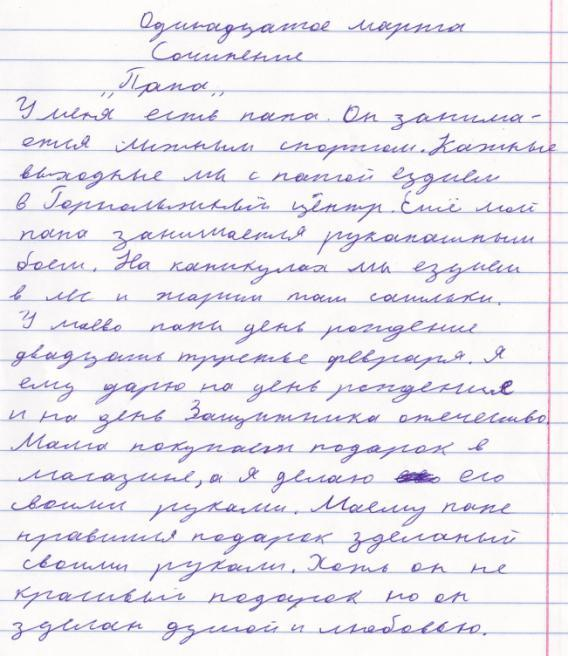 Одинадцатое марта
Сочинение
„Папа„
У меня есть папа. Он занима-
ется лыжным спортом. Кажные
выходные мы с папой ездием
в Горнолыжный центр. Ещё мой
папа занимается рукапашным
боем. На каникулах мы ездием
в лес и жарим там сасильки.
У маево папы день рождение
двадцать третье февраря. Я
ему дарю на день рождения
и на день Защитника отечество.
Мама покупает подарок в
магазине, а я делаю его
своими руками. Маему папе
нравится подарок зделаный
своими руками. Хоть он не
красивый подарок но он
зделан душой и любовью.